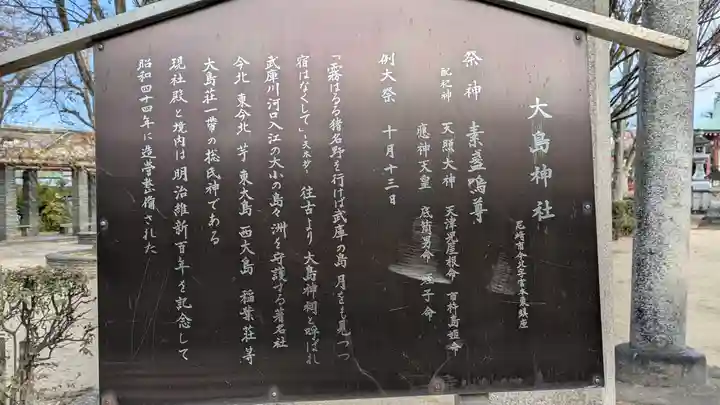 大島神社
尼崎市今北字宮本鎮座
祭神 素盞嗚尊
配祀神 天照大神 天津児屋根命 市杵島姫命
應神天皇 底筒男命 蛭子命
例大祭 十月十三日
「霧はるる猪名野を行けば武庫の島 月をも見つつ
宿はなくして」 往古より 大島神祠と呼ばれ
武庫川河口入江の大小の島々洲を守護する著名社
今北 東今北 芋 東大島 西大島 稲葉荘等
大島荘一帯の総氏神である
現社殿と境内は明治維新百年を記念して
昭和四十四年に造営整備された